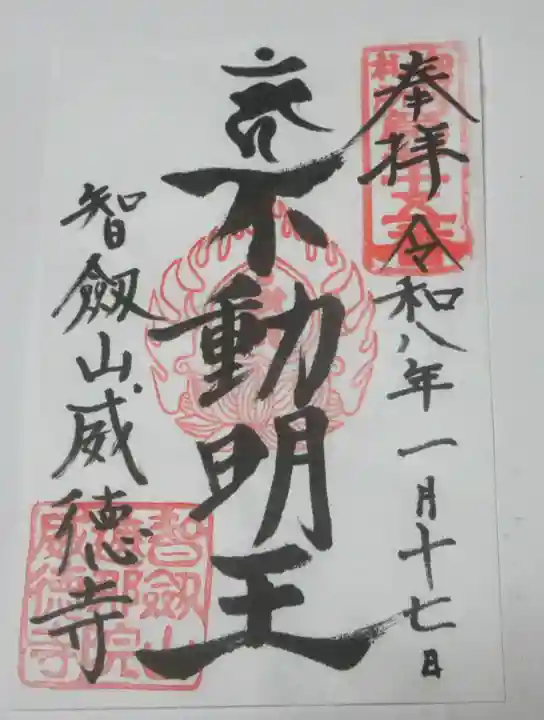 奉拝 令和八年一月十七日
不動明王
智劔山威徳寺
智劔山
威徳寺